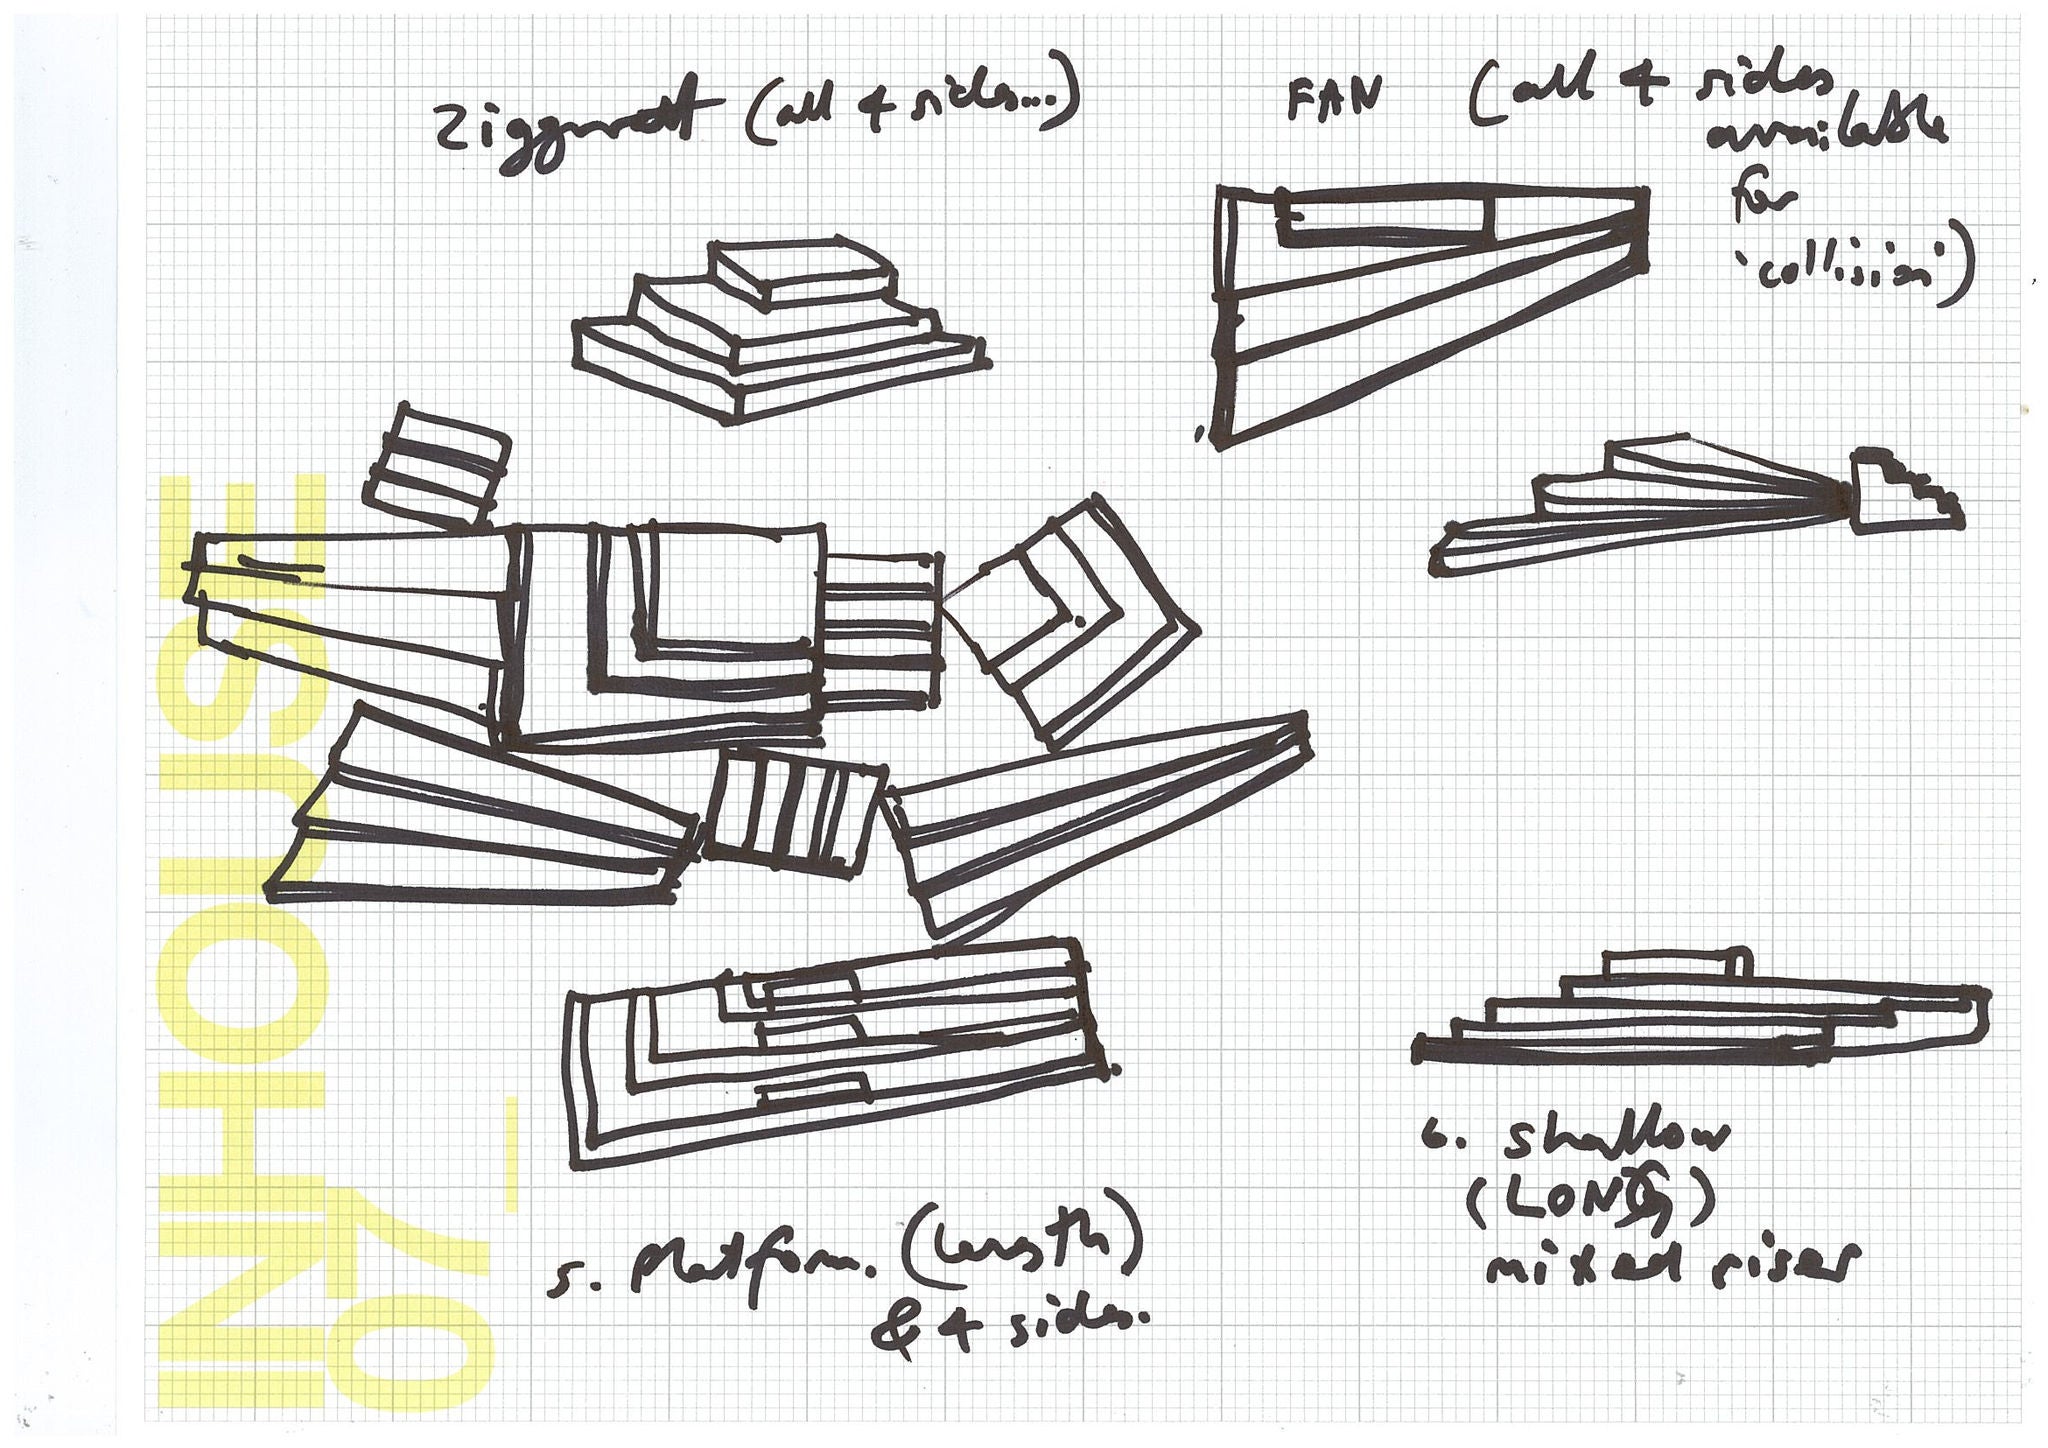 Zigguratt (all 4 sides...)
FAN (all 4 sides
available
for
'collision')
INHOUSE
07_
5. Platform. (length)
& 4 sides.
6. shallow
(LONG)
mixed riser